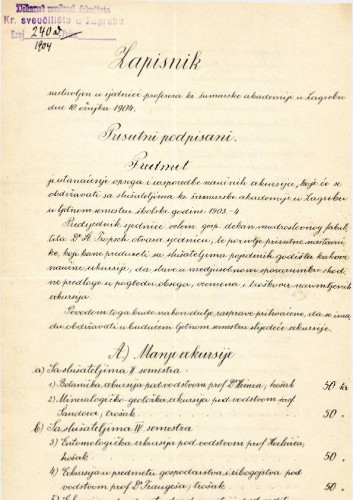 Dekanat mudrosl. fakulteta
Kr. sveučilišta u Zagrebu
Broj 240
1904
Zapisnik
sastavljen u sjednici profesora kr. šumarske akademije u Zagrebu
dne 10 ožujka 1904.
Prisutni podpisani.
Predmet
je ustanačenje opsega i rasporedbe naučnih ekskurzija, koje će se
obdržavati sa slušateljima kr. šumarske akademije u Zagrebu
u ljetnom semestru školske godine 1903-4
Predsjednik sjednice velem. gosp. dekan mudroslovnog fakul-
teta Dr. Franges otvara sjednicu, te pozivlje prisutne nastavni-
ke, koji kane preduzeti sa slušateljima pojedinih godišta kakove
naučne ekskurzije, da stave u medjusobnom sporazumku shod-
ne predloge u pogledu obsega, vremena i troškova naumljenih
ekskurzija.
Povodom toga bude nakon dulje rasprave prihvaćeno, da se ima-
du obdržavati u budućem ljetnom semestru slijedeće ekskurzije.
A.) Manje ekskurzije
a) Sa slušateljima II semestra
1) Botanička ekskurzija pod vodstvom prof. Dr. Heinza, trošak 50 kr.
2) Mineralogičko-geoložka ekskurzija pod vodstvom prof.
trošak 50 -
b) Sa slušateljima IV semestra
3) Entomologička ekskurzija pod vodstvom prof.
trošak 50 -
4) Ekskurzija iz predmeta gospodarstva i ribogojstva pod
vodstvom prof. Dr. Frangeša, trošak 50 -